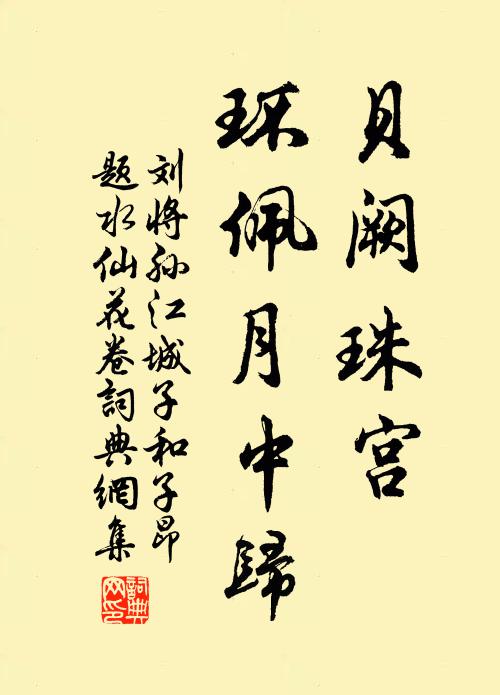 貝阙珠宫
环佩月中歸
刘将孙江城子和子昂
题水仙花卷詞典網集
詞典
网印